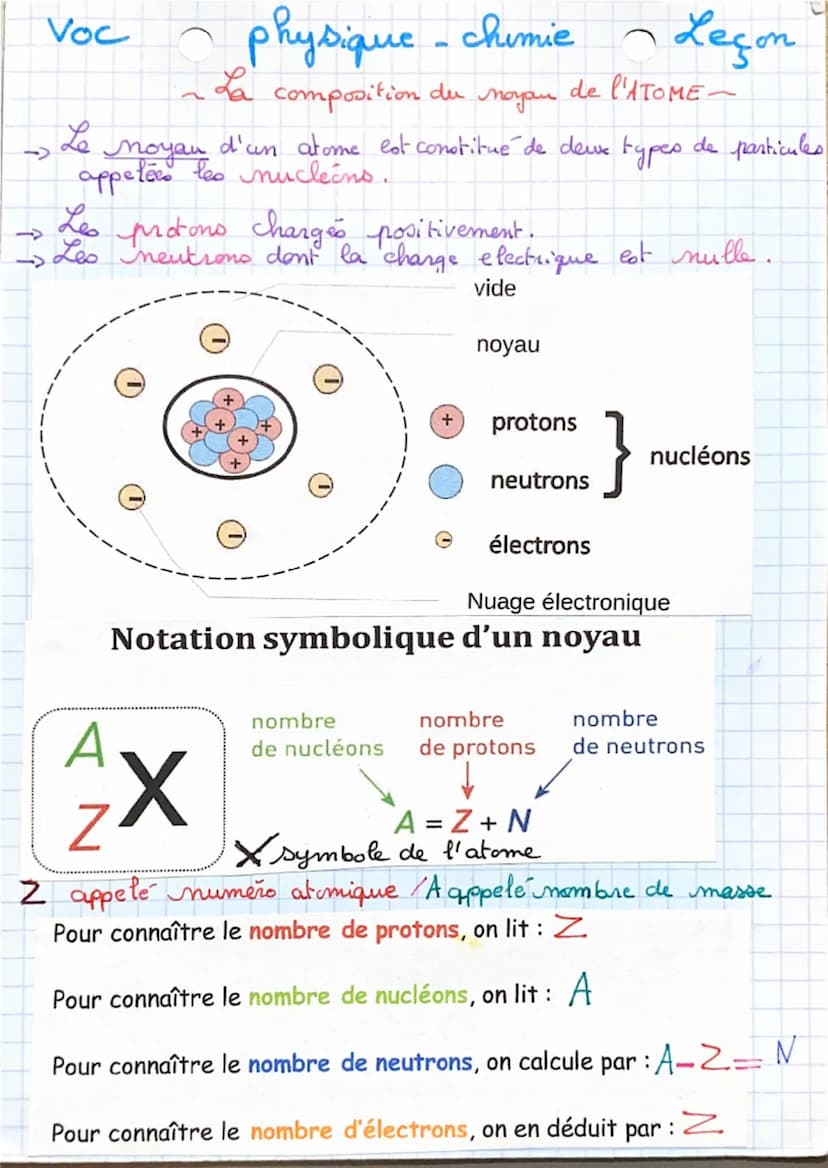 Voc physique - chimie Leçon
~ La composition du noyau de l'ATOME ~
→ Le noyau d'un atome est constitué de deux types de particules
appelées les nucléons.
→ Les protons chargés positivement.
→ Les neutrons dont la charge electrique est nulle.
vide
noyau
+ protons
nucléons
neutrons
- électrons
Nuage électronique
Notation symbolique d'un noyau
A
Z
X
nombre de nucléons
nombre de protons
nombre de neutrons
A = Z + N
X symbole de l'atome
Z appelé numéro atomique / A appelé nombre de masse
Pour connaître le nombre de protons, on lit : Z
Pour connaître le nombre de nucléons, on lit : A
Pour connaître le nombre de neutrons, on calcule par : A-Z= N
Pour connaître le nombre d'électrons, on en déduit par : Z